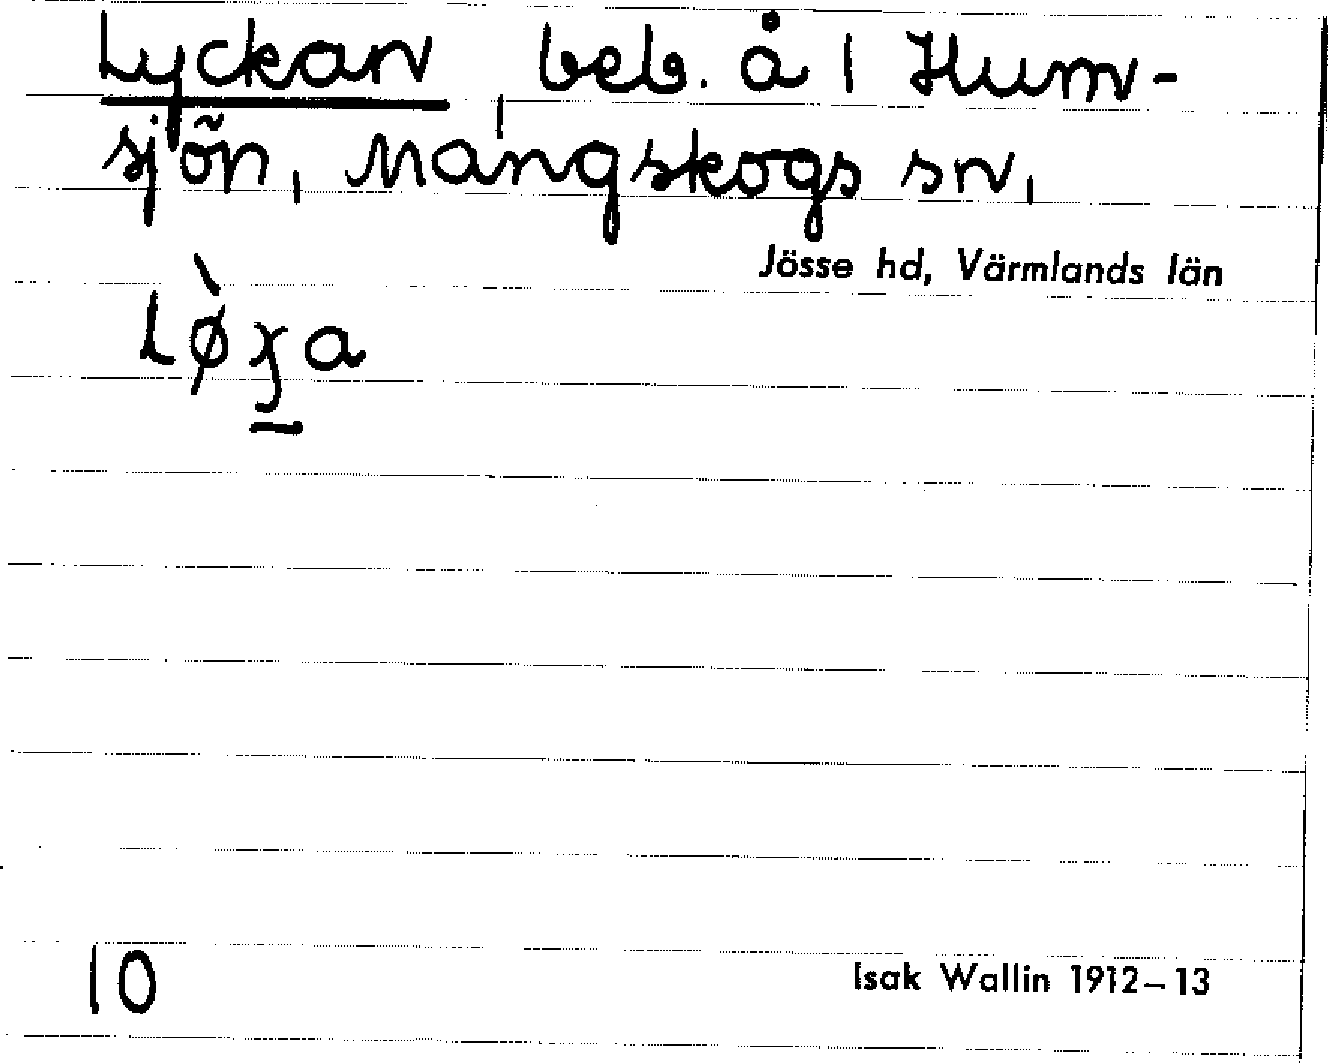 Lyckan, beb. å l Hum-
sjön, Mangskogs sn,
Jösse hd, Värmlands län
10
Isak Wallin 1912–13